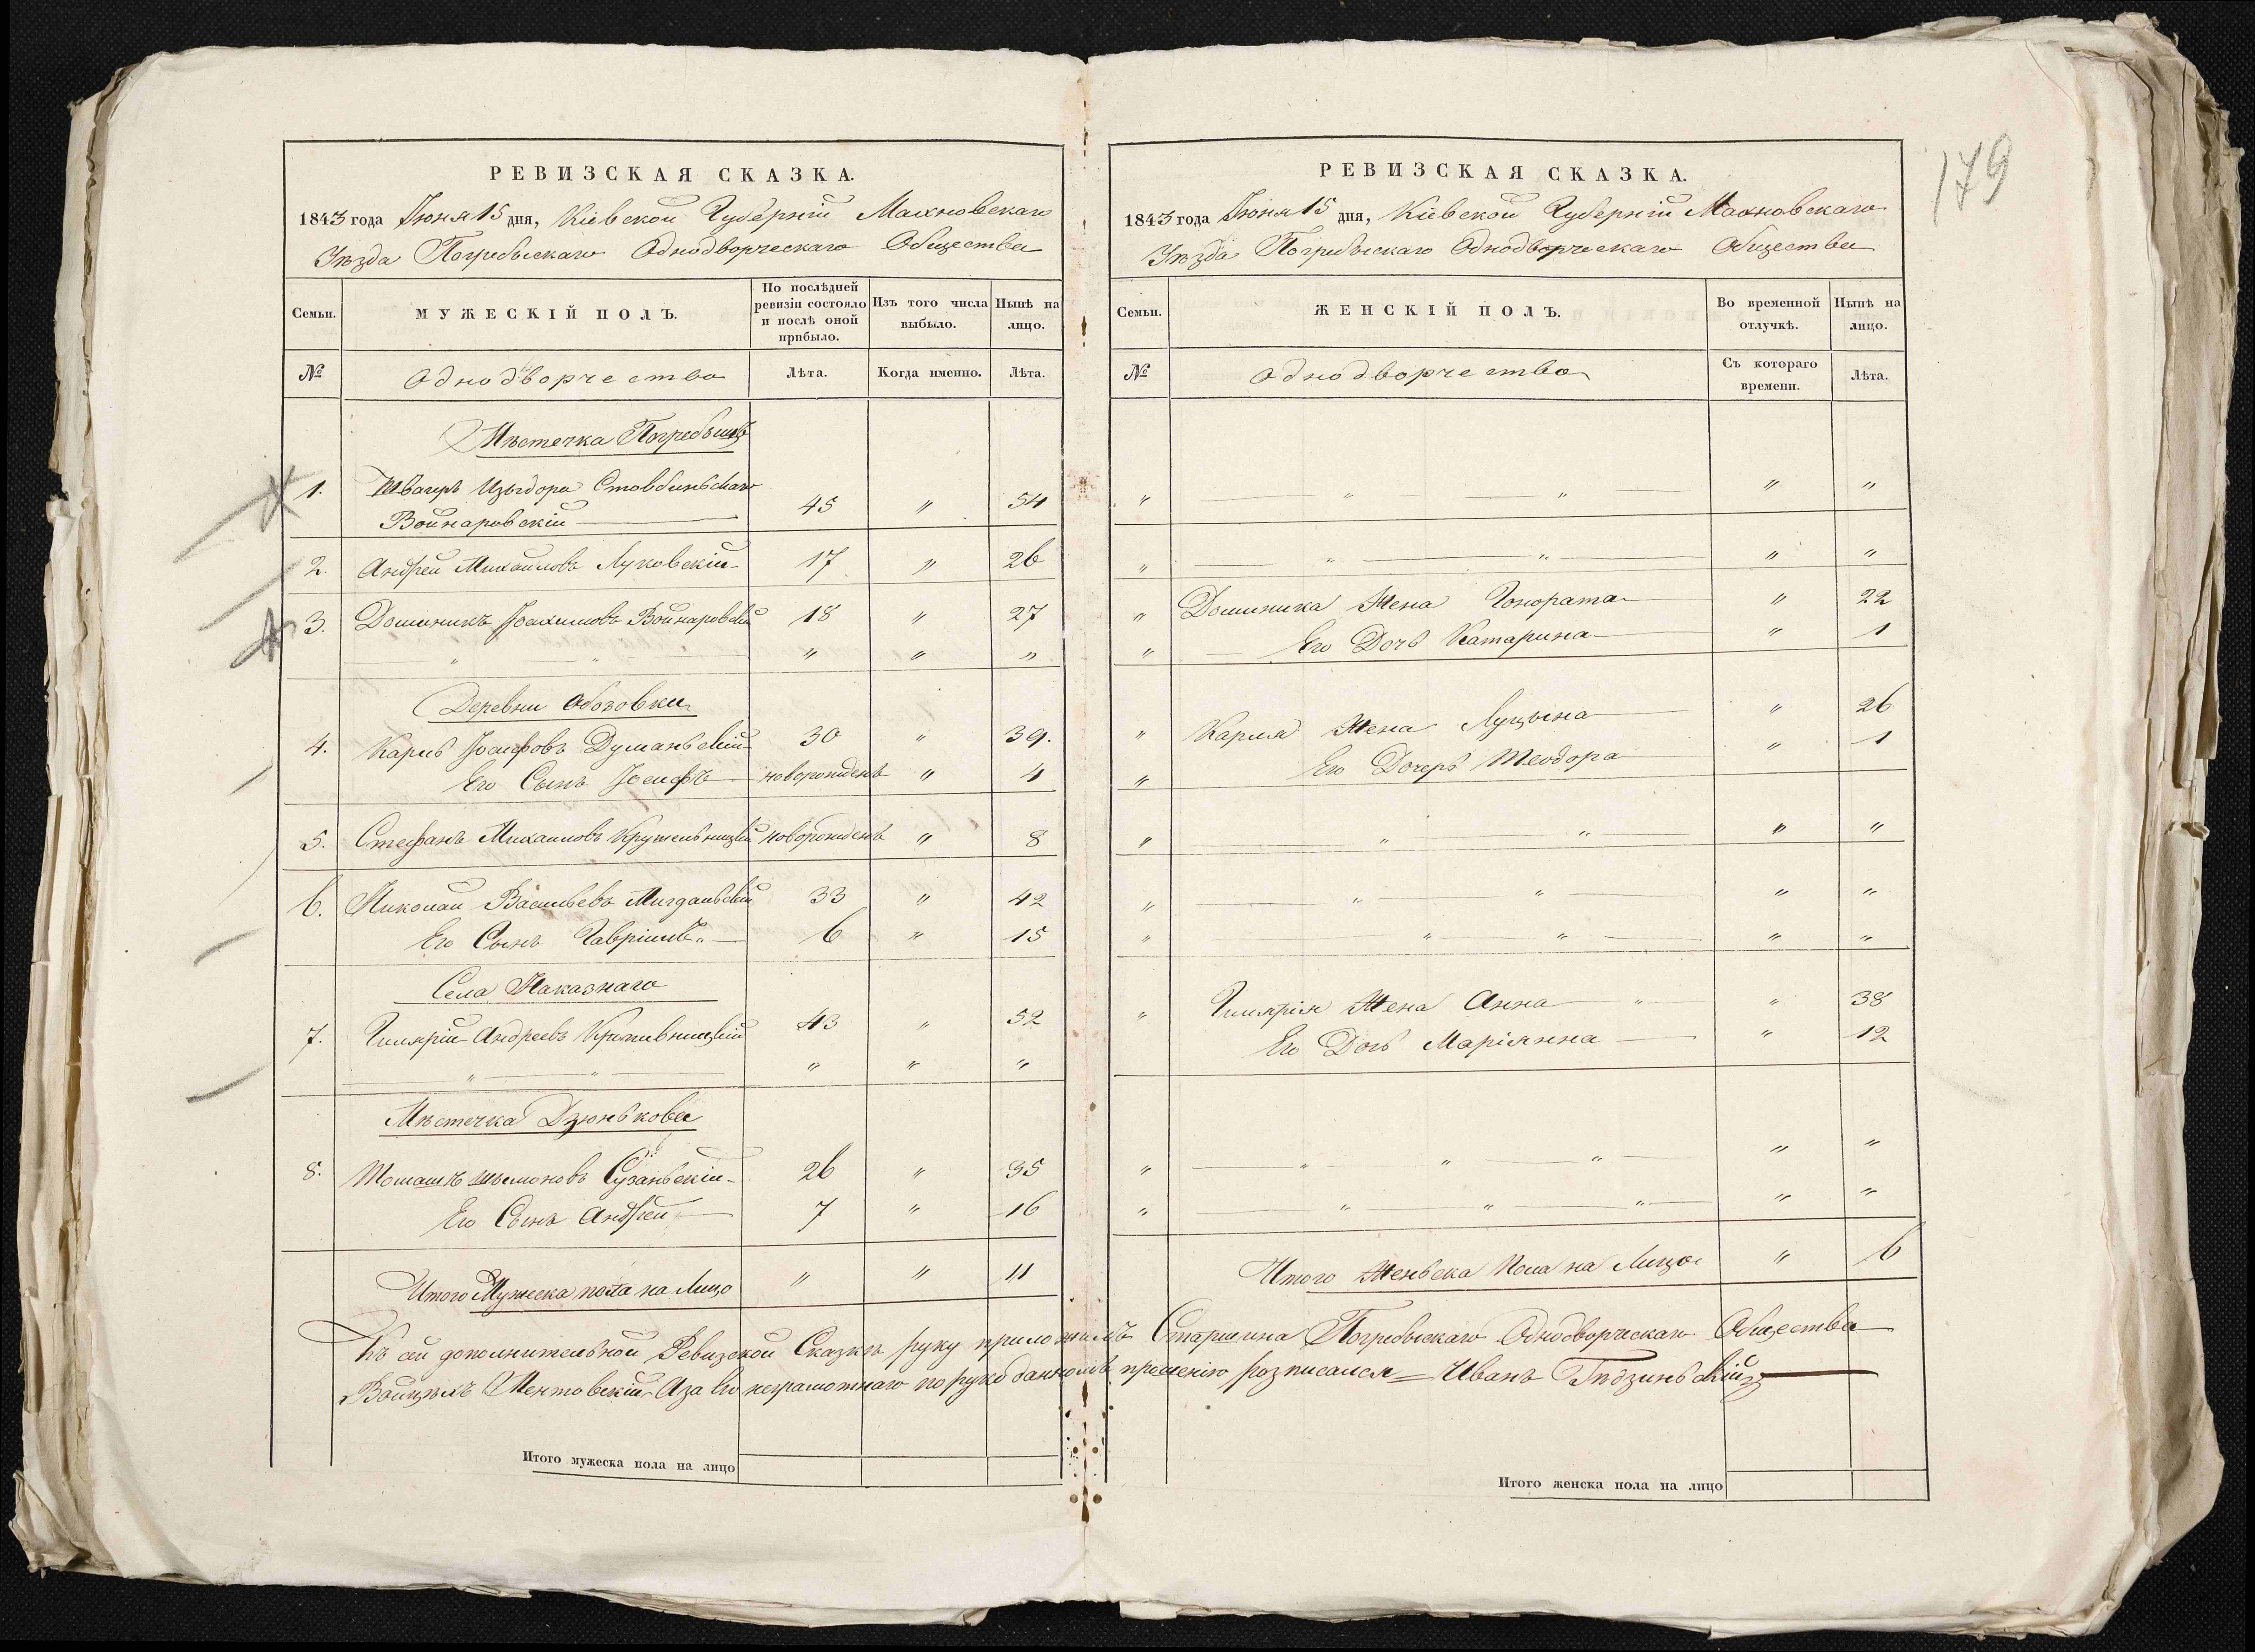 РЕВИЗСКАЯ СКАЗКА.
1843 года Іюня 15 дня, Кіевской Губерніи Махновскаго
Уѣзда Погребыскаго Однодворческаго Общества
Семьи. МУЖЕСКІЙ ПОЛЪ. По послѣдней ревизіи состояло и послѣ оной прибыло. Изъ того числа выбыло. Нынѣ на лицо.
№ Однодворчество Лѣта. Когда именно. Лѣта.
Мѣстечка Погребыщъ
1. Швагиръ Изыдора Стовбиньскаго
Войнаровскій 45 " 54
2. Андрей Михайловъ Луковскій 17 " 26
3. Доминикъ Іоахимовъ Войнаровскій 18 " 27
" " " " "
Деревни Обозовки
4. Карль Іосифовъ Думаньскій 30 " 39.
Его Сынъ Іосифъ новорожденъ " 4
5. Стефанъ Михаиловъ Кружельницкій новорожденъ " 8
6. Николай Васильевъ Мигдальскій 33 " 42
Его Сынъ Гавріилъ " 6 " 15
Села Наказнаго
7. Гилярій Андреевъ Крживницкій 43 " 52
" " " " "
Мѣстечка Дзюнькова
8. Томашъ Шымоновъ Сузаньскій 26 " 35
Его Сынъ Андрей 7 " 16
Итого Мужеска пола на Лицо " " 11
РЕВИЗСКАЯ СКАЗКА.
1843 года Іюня 15 дня, Кіевской Губерніи Махновскаго
Уѣзда Погребыскаго Однодворческаго Общества
Семьи. ЖЕНСКІЙ ПОЛЪ. Во временной отлучкѣ. Нынѣ на лицо.
№ Однодворчество Съ котораго времени. Лѣта.
" " " " "
" " " " "
" Доминика Жена Гонората " 22
" Его Дочь Катарина " 1
" Карля Жена Луцына " 26
" Его Дочерь Теодора " 1
" " " " "
" " " " "
" " " " "
" Гилярія Жена Анна " " 38
Его Дочь Маріянна " 12
" " " " " "
" " " " " "
Итого Женьска Пола на Лицо " 6
Къ сей дополнительной Ревизской Сказкѣ руку приложилъ Старшина Погребыскаго Однодворческаго Общества
Войцѣхъ Ментовскій А за Его неграмотнаго по рукоданномѣ прошенію розписался Иванъ Гѣдзиньскій
Итого мужеска пола на лицо
Итого женска пола на лицо
179